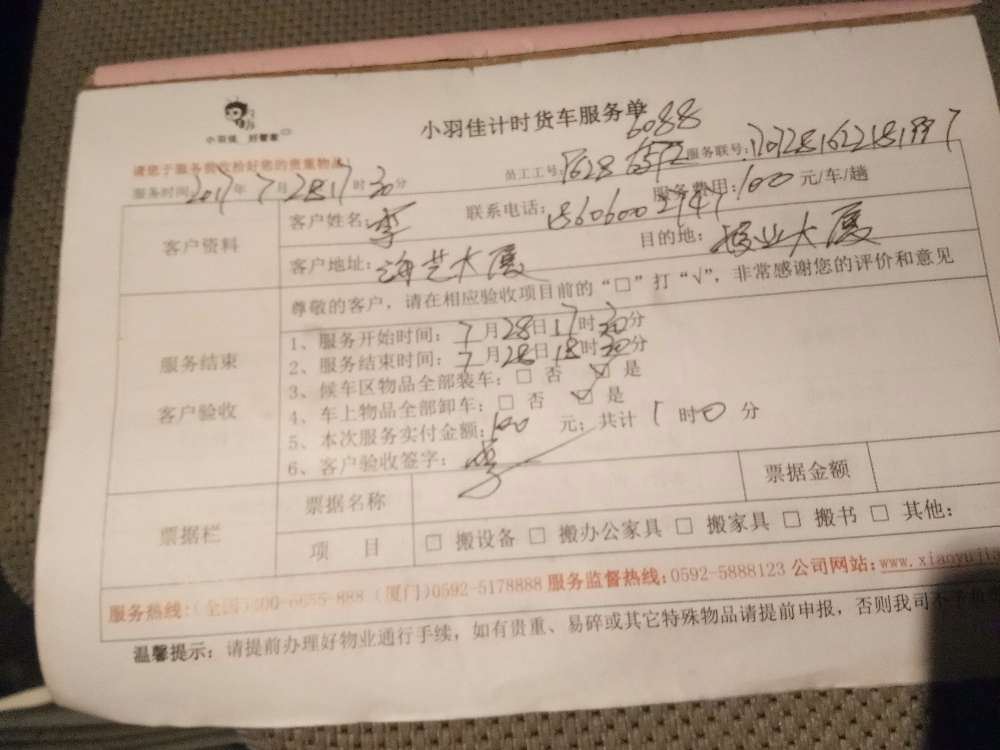 小羽佳 好管家
小羽佳计时货车服务单
6088
请您于服务前收拾好您的贵重物品
员工工号: 服务联号:
服务时间:2017年7月28 17时30分
服务费用:100元/车/趟
客户资料
客户姓名:李 联系电话:
客户地址:海艺大厦 目的地:大厦
尊敬的客户，请在相应验收项目前的“□”打“√”，非常感谢您的评价和意见
服务结束
客户验收
1、服务开始时间:7月28日17时30分
2、服务结束时间:7月28日18时30分
3、候车区物品全部装车:□ 否 ☑ 是
4、车上物品全部卸车:□ 否 ☑ 是
5、本次服务实付金额:100 元; 共计 1 时 0 分
6、客户验收签字:李
票据栏
票据名称 票据金额
项 目 □ 搬设备 □ 搬办公家具 □ 搬家具 □ 搬书 □ 其他:
服务热线:(全国)400-6655-888 (厦门)0592-5178888 服务监督热线:0592-5888123 公司网站:
温馨提示: 请提前办理好物业通行手续，如有贵重、易碎或其它特殊物品请提前申报，否则我司不予